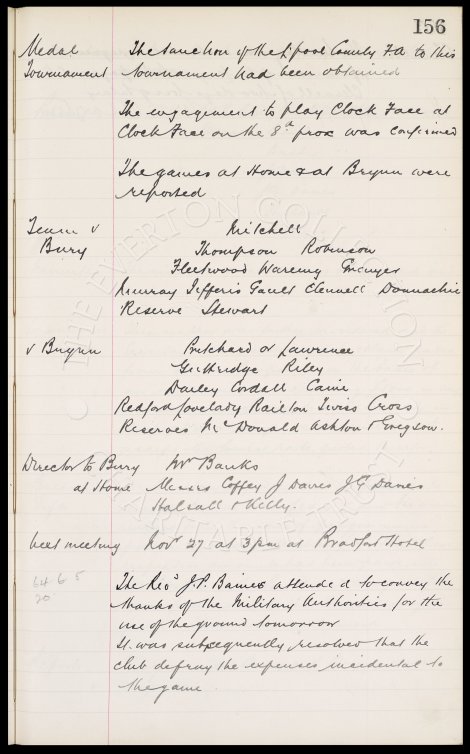 156
Medal The Sanction of the L'pool County F.A to this
Tournament tournament had been obtained
The engagement to play Clock Face at
Clock Face on the 8th prox was confirmed
The games at Home & at Brynn were
reported
Team v Mitchell
Bury Thompson Robinson
Fleetwood Wareing Grenyer
Murray Jefferis Gault Clennell Donnachie
Reserve Stewart
v Brynn Pritchard or Lawrence
Guttridge Riley
Danley Cordall Caine
Redford Lovelady Railton Twiss Cross
Reserves McDonald Ashton & Gregson.
Director to Bury Mr Banks
at Home Messrs Coffey J Davies J.G Davies
Halsall & Kelly.
Next meeting Nov 27 at 3pm at Bradford Hotel
64 6 5
20
The Revd J.P. Baines attended to convey the
thanks of the Military Authorities for the
use of the ground tomorrow
It was subsequently resolved that the
club defray the expenses incidental to
the game.
THE EVERTON COLLECTION
CHARITABLE TRUST